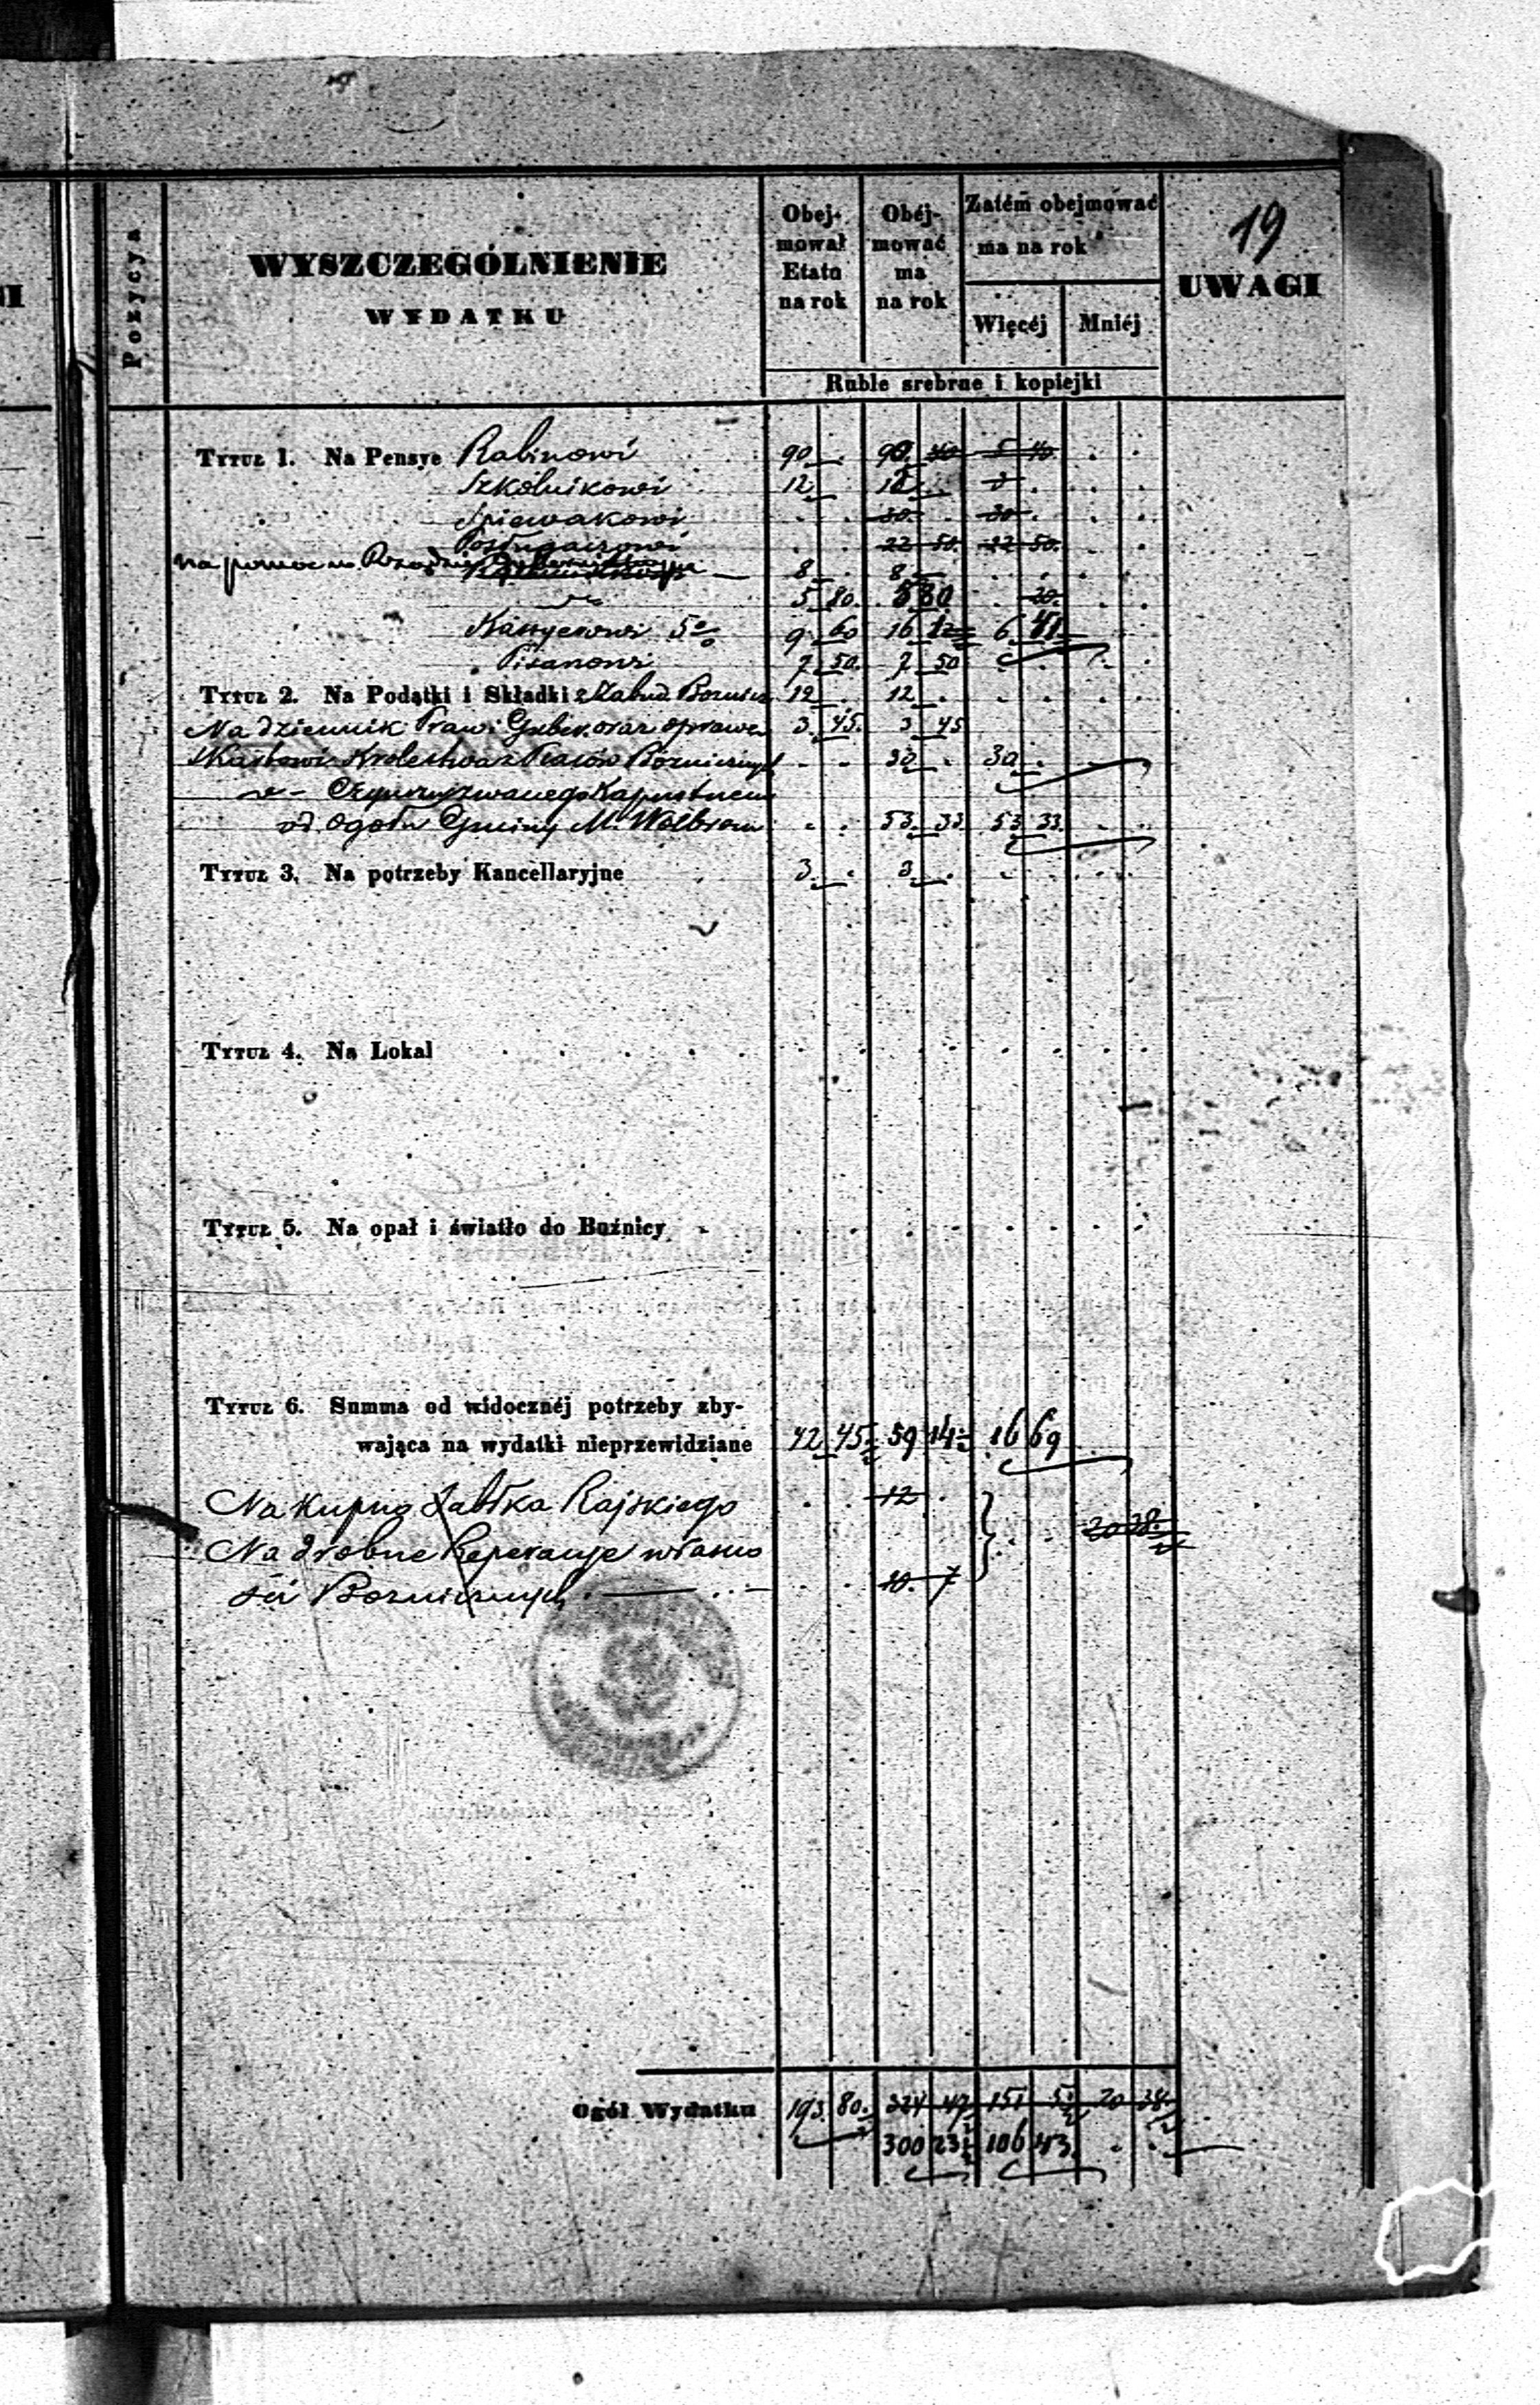 19
Pozycya
WYSZCZEGÓLNIENIE
WYDATKU
Obej-
mował
Etatu
na rok
Obéj-
mować
ma
na rok
Zatém obejmować
ma na rok
Więcéj
Mniéj
UWAGI
Ruble srebrne i kopiejki
Tytuł 1. Na Pensye Rabinowi 90 90 40 5 40
Szkólnikowi 12
Spiewakowi 30 30
Posługaczowi 22 50 22 50
na pomoc w 8 8
5 80 5 80 20
Kassyerowi 5% 9 60 16 6
Pisarzowi 7 50 7 50
Tytuł 2. Na Podatki i Składki z Zabud Boznicz 12 12
Na dziennik Praw i Guber. oraz oprawa 3 45 3 45
Skarbowi Krolestwa z Placów Bozniczych 30 30
Czynszu zwanego Kapustnem
od Ogołu Gminy M. Wolbrom 53 33 53 33
Tytuł 3. Na potrzeby Kancellaryjne 3 3
Tytuł 4. Na Lokal
Tytuł 5. Na opał i światło do Bóźnicy
Tytuł 6. Summa od widocznéj potrzeby zby-
wająca na wydatki nieprzewidziane 42 45 59 14 16 69
Na Kupno Jabłka Rajskiego 12
20 38
Na drobne Reperacye własno
ści Bozniczych 10 7
Ogół Wydatku 193 80 324 47 151 5 20 38
300 23 106 43